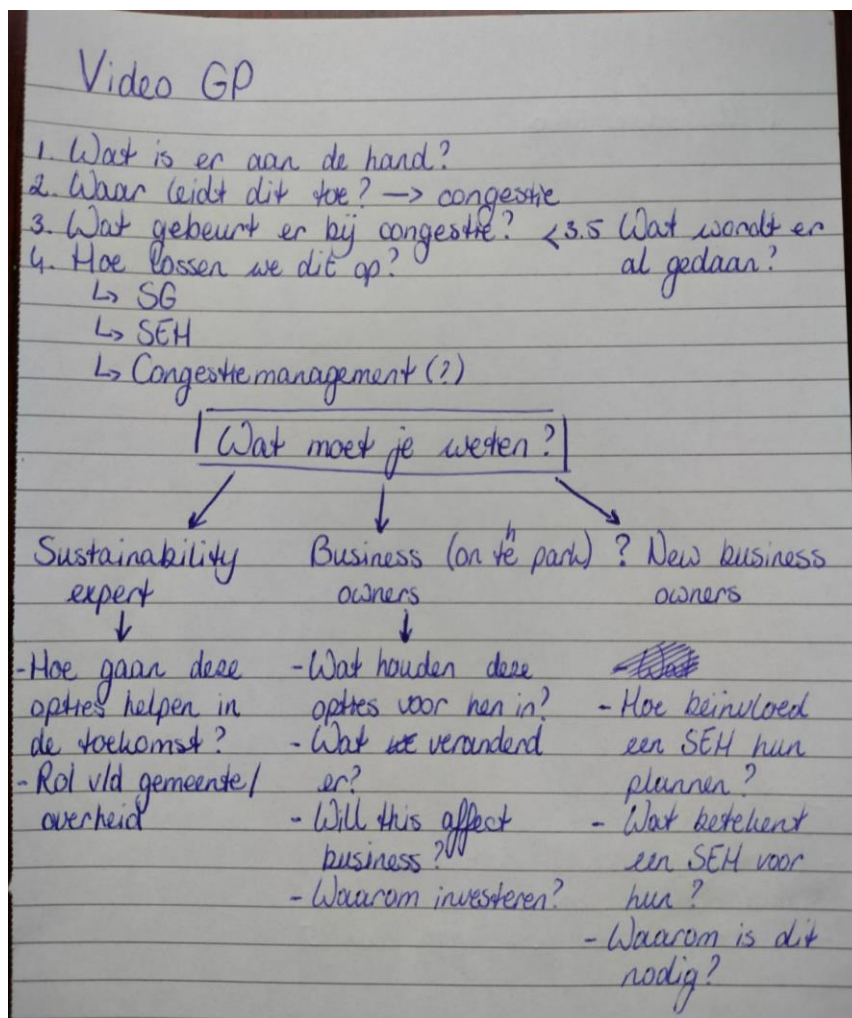 Video GP
1. Wat is er aan de hand?
2. Waar leidt dit toe? → congestie
3. Wat gebeurt er bij congestie? < 3.5 Wat wordt er
al gedaan?
4. Hoe lossen we dit op?
↳ SG
↳ SEH
↳ Congestiemanagement (?)
Wat moet je weten?
Sustainability
expert
- Hoe gaan deze
opties helpen in
de toekomst?
- Rol v/d gemeente/
overheid
Business (on the park)
owners
- Wat houden deze
opties voor hen in?
- Wat veranderd
er?
- Will this affect
business?
- Waarom investeren?
? New business
owners
- Hoe beinvloed
een SEH hun
plannen?
- Wat betekent
een SEH voor
hun?
- Waarom is dit
nodig?